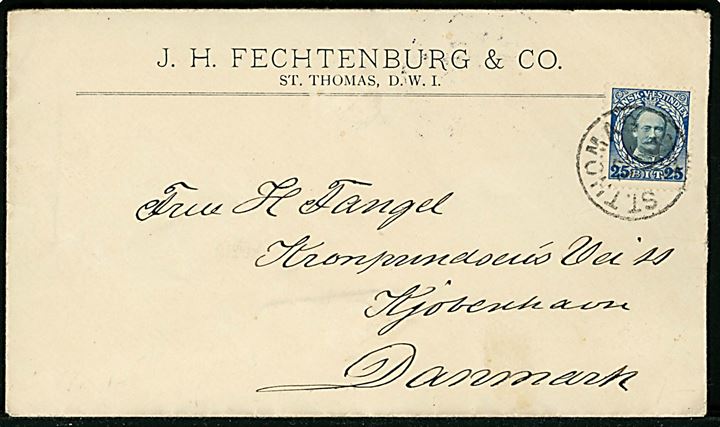 J. H. FECHTENBURG & CO.
ST. THOMAS, D.W.I.
DANSK·VESTINDIEN
25 BIT 25
ST. THOMAS
Frue H Fangel
Kronprindsens Vei
Kjöbenhavn
Danmark